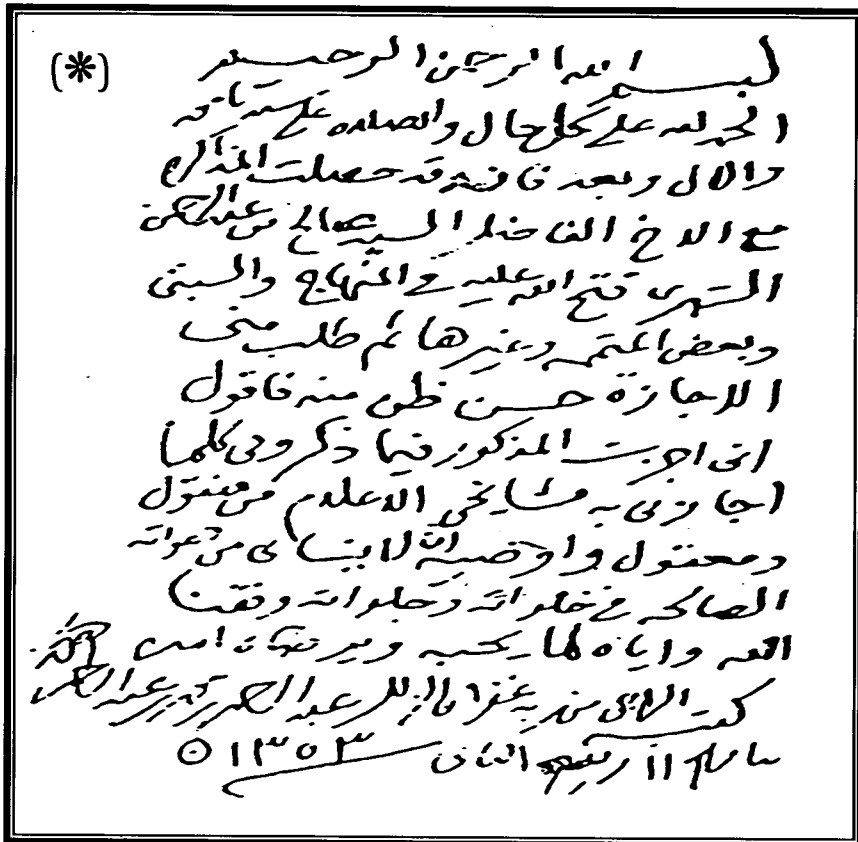 (*)
بسم الله الرحمن الرحيم
الحمد لله على كل حال والصلاه على
والال وبعد فانه قد حصلت المذاكره
مع الاخ الفاضل السيد صالح بن عبد الرحمن
فتح الله عليه في المنهاج
وبعض وغيرها ثم طلب مني
الاجازة حسن ظن منه فاقول
اني اجزت المذكور فيما ذكر وفي كلما
اجازني به مشايخي الاعلام من منقول
ومعقول واوصيه ان لا ينساني من دعواته
الصالحه في خلواته وجلواته وفقنا
الله واياه لما يحبه ويرضاه امين
كتبه الراجي من ربه غفران الزلل عبد
ربيع الثاني ١٣٥٣